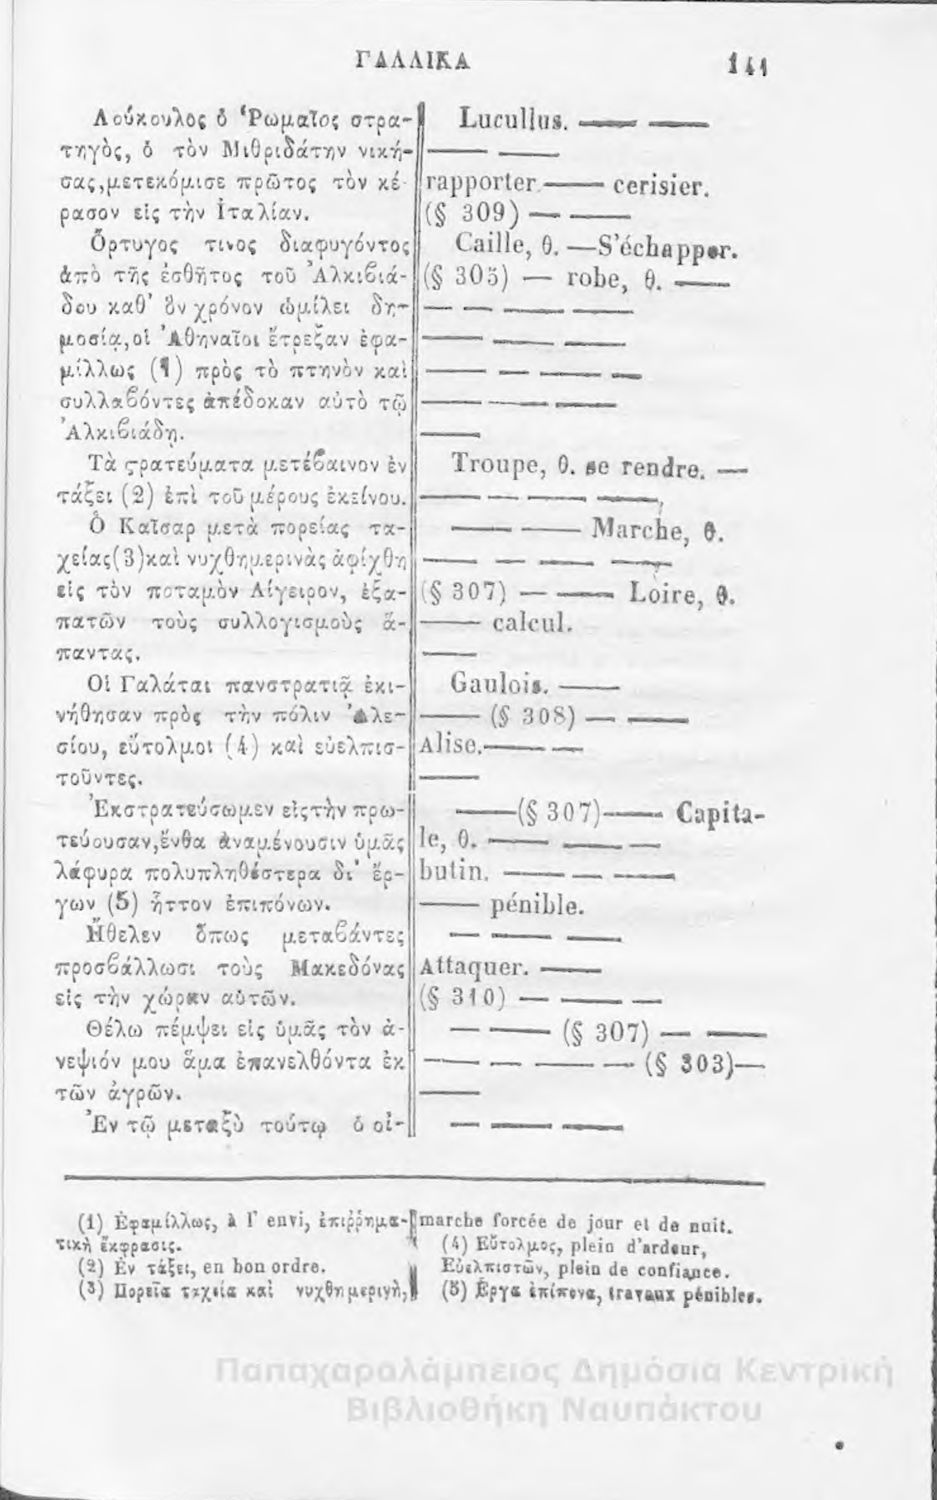 ΓΑΛΛΙΚΑ 141
Λούκουλος ὁ Ῥωμαῖος στρα-
τηγὸς, ὁ τὸν Μιθριδάτην νική-
σας, μετεκόμισε πρῶτος τὸν κέ-
ρασον εἰς τὴν Ἰταλίαν.
Ὄρτυγος τινος διαφυγόντος
ἀπὸ τῆς ἐσθῆτος τοῦ Ἀλκιβιά-
δου καθ’ ὃν χρόνον ὡμίλει δη-
μοσίᾳ, οἱ Ἀθηναῖοι ἔτρεξαν ἐφα-
μίλλως (1) πρὸς τὸ πτηνὸν καὶ
συλλαβόντες ἀπέδοκαν αὐτὸ τῷ
Ἀλκιβιάδῃ.
Τὰ ϛρατεύματα μετέβαινον ἐν
τάξει (2) ἐπὶ τοῦ μέρους ἐκείνου.
Ὁ Καῖσαρ μετὰ πορείας τα-
χείας(3)καὶ νυχθημερινὰς ἀφίχθη
εἰς τὸν ποταμὸν Λίγειρον, ἐξα-
πατῶν τοὺς συλλογισμοὺς ἅ-
παντας.
Οἱ Γαλάται πανστρατιᾷ ἐκι-
νήθησαν πρὸς τὴν πόλιν Ἀλε-
σίου, εὔτολμοι (4) καὶ εὐελπισ-
τοῦντες.
Ἐκστρατεύσωμεν εἰς τὴν πρω-
τεύουσαν, ἔνθα ἀναμένουσιν ὑμᾶς
λάφυρα πολυπληθέστερα δι’ ἔρ-
γων (5) ἧττον ἐπιπόνων.
Ἤθελεν ὅπως μεταβάντες
προσβάλλωσι τοὺς Μακεδόνας
εἰς τὴν χώραν αὐτῶν.
Θέλω πέμψει εἰς ὑμᾶς τὸν ἀ-
νεψιόν μου ἅμα ἐπανελθόντα ἐκ
τῶν ἀγρῶν.
Ἐν τῷ μεταξὺ τούτῳ ὁ οἰ-
Lucullus. — —
— —
rapporter. — cerisier.
(§ 309) — —
Caille, θ. — S’échapper.
(§ 305) — robe, θ. —
— — — —
— — —
— — — —
— — —
—
Troupe, θ. se rendre. —
— — — —,
— — Marche, θ.
— — — —
(§ 307) — — Loire, θ.
— calcul.
—
Gaulois. —
— (§ 308) — —
Alise. — —
—
— (§ 307) — Capita-
le, θ. — — —
butin. — — —
— pénible.
— — —
Attaquer. —
(§ 310) — — —
— — (§ 307) — —
— — — — (§ 303) —
—
— — —
(1) Ἐφαμίλλως, à l’ envi, ἐπιῤῥημα-
τικὴ ἔκφρασις.
(2) Ἐν τάξει, en bon ordre.
(3) Πορεῖα ταχεία καὶ νυχθημερινὴ,
marche forcée de jour et de nuit.
(4) Εὔτολμος, plein d’ardeur,
Εὐελπιστῶν, plein de confiance.
(5) Ἔργα ἐπίπονα, travaux pénibles.
Παπαχαραλάμπειος Δημόσια Κεντρική
Βιβλιοθήκη Ναυπάκτου